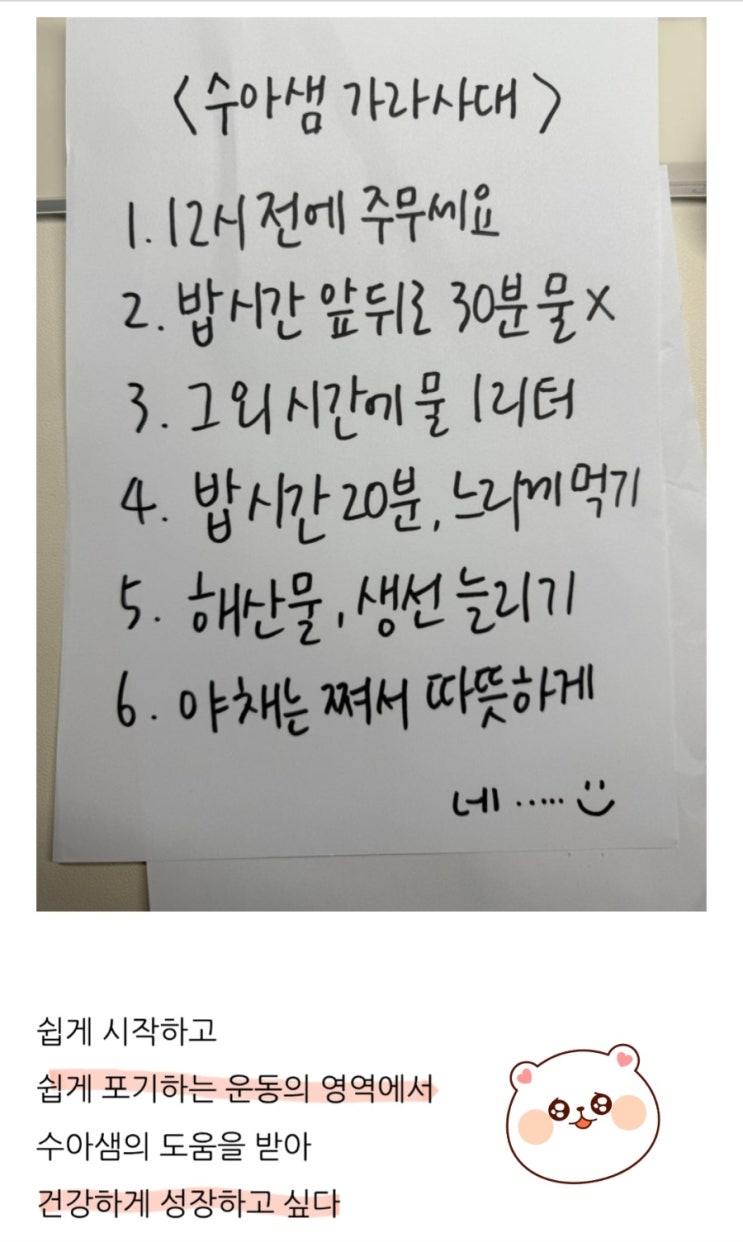 <수아샘 가라사대>
1. 12시 전에 주무세요
2. 밥시간 앞뒤로 30분 물 X
3. 그 외 시간에 물 1리터
4. 밥시간 20분, 느리게 먹기
5. 해산물, 생선 늘리기
6. 야채는 쪄서 따뜻하게
네 ·····
쉽게 시작하고
쉽게 포기하는 운동의 영역에서
수아샘의 도움을 받아
건강하게 성장하고 싶다